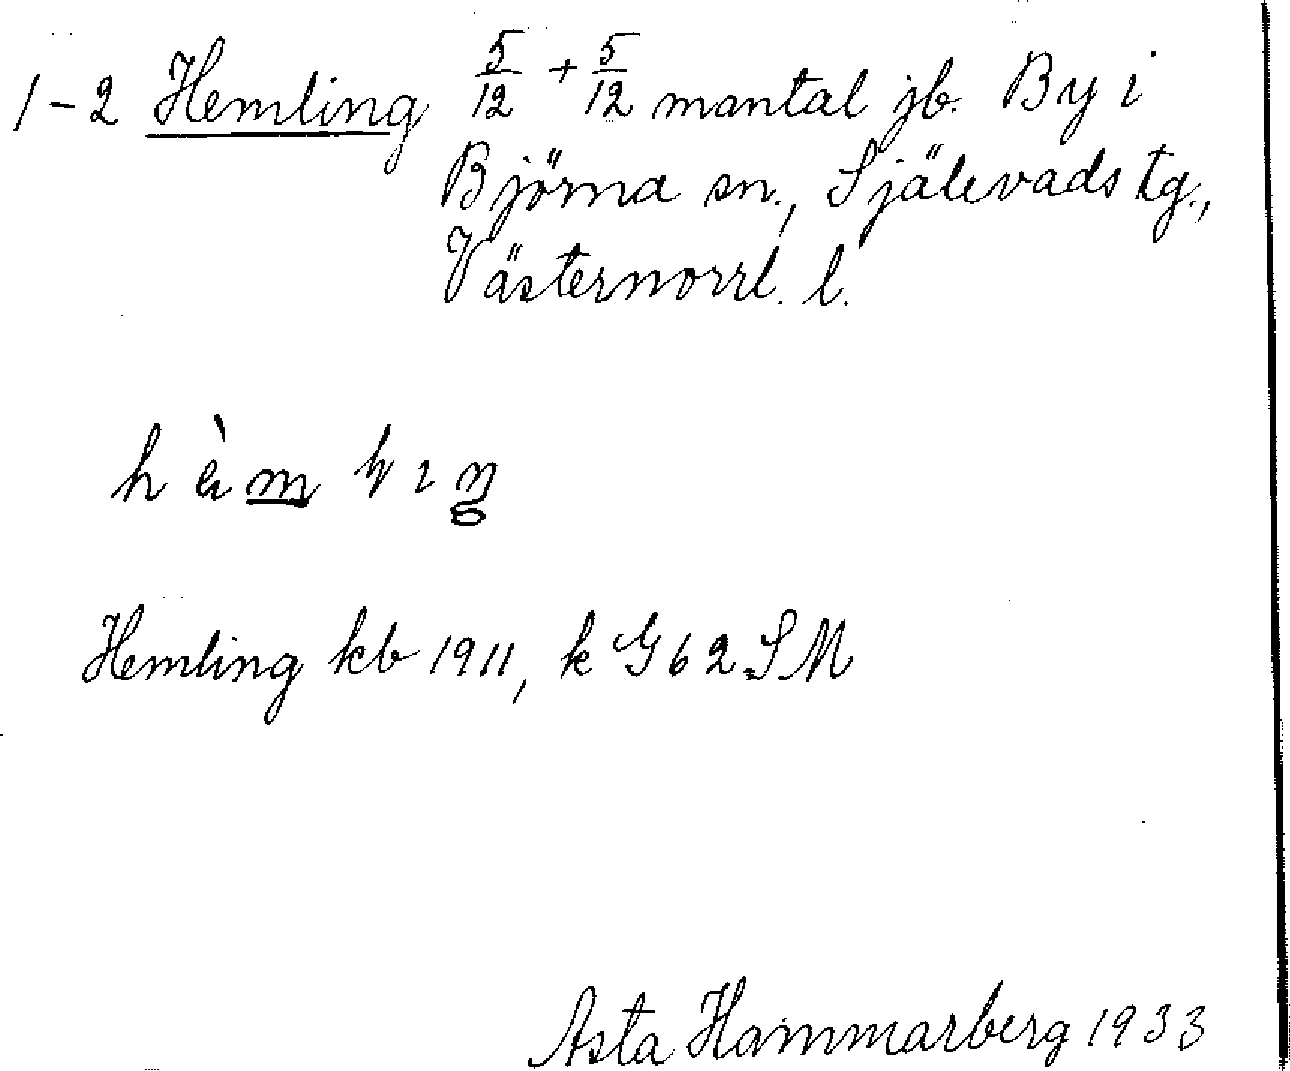 1-2 Hemling 5/12 + 5/12 mantal jb. By i
Björna sn., Själevads tg.,
Västernorrl. l.
Hemling kb 1911, k G 62 SM
Asta Hammarberg 1933